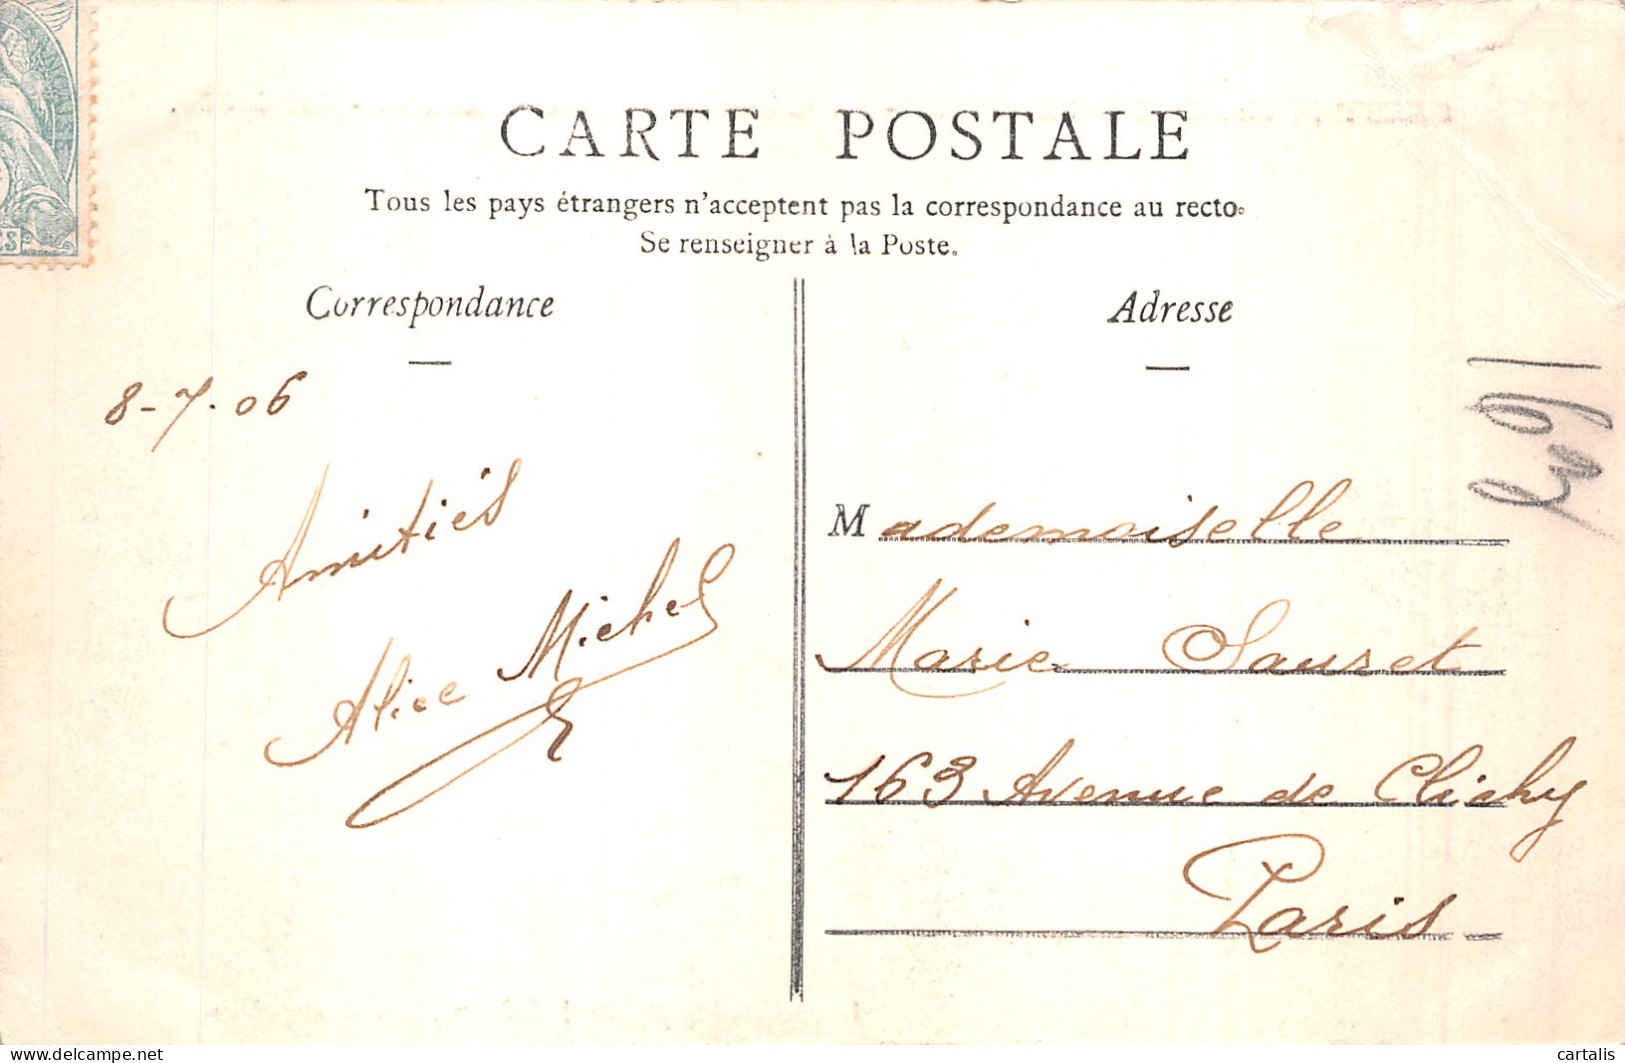 CARTE POSTALE
Tous les pays étrangers n'acceptent pas la correspondance au recto.
Se renseigner à la Poste.
Correspondance
Adresse
8-7-06
Amitiés
Alice Michel
Mademoiselle
Marie Sauret
163 Avenue de Clichy
Paris
delcampe.net
cartalis